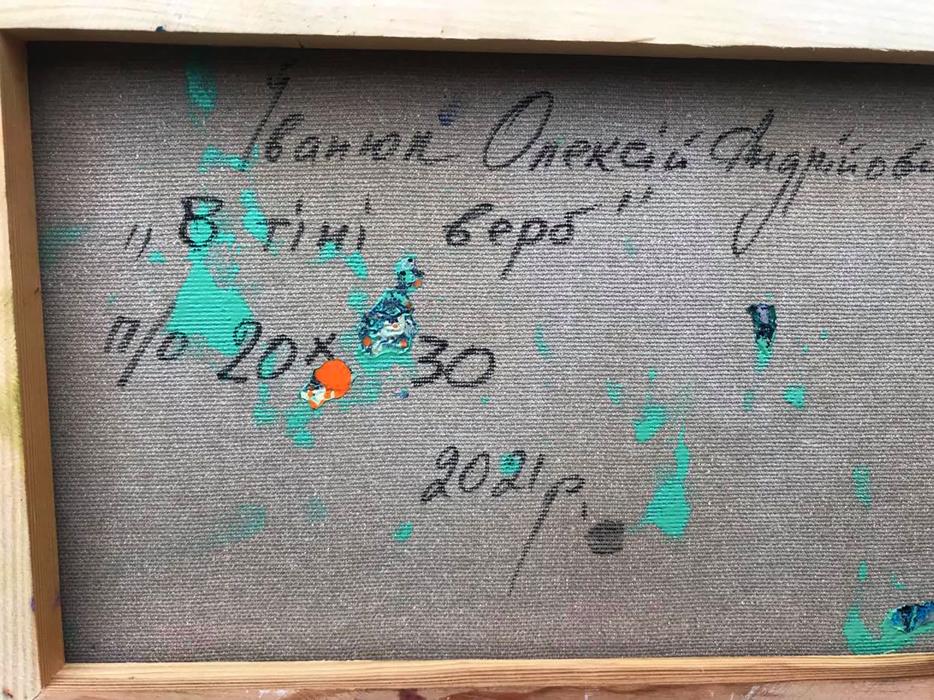 Іванюк Олексій Андрійови
"В тіні верб"
п/о 20x30
2021р.